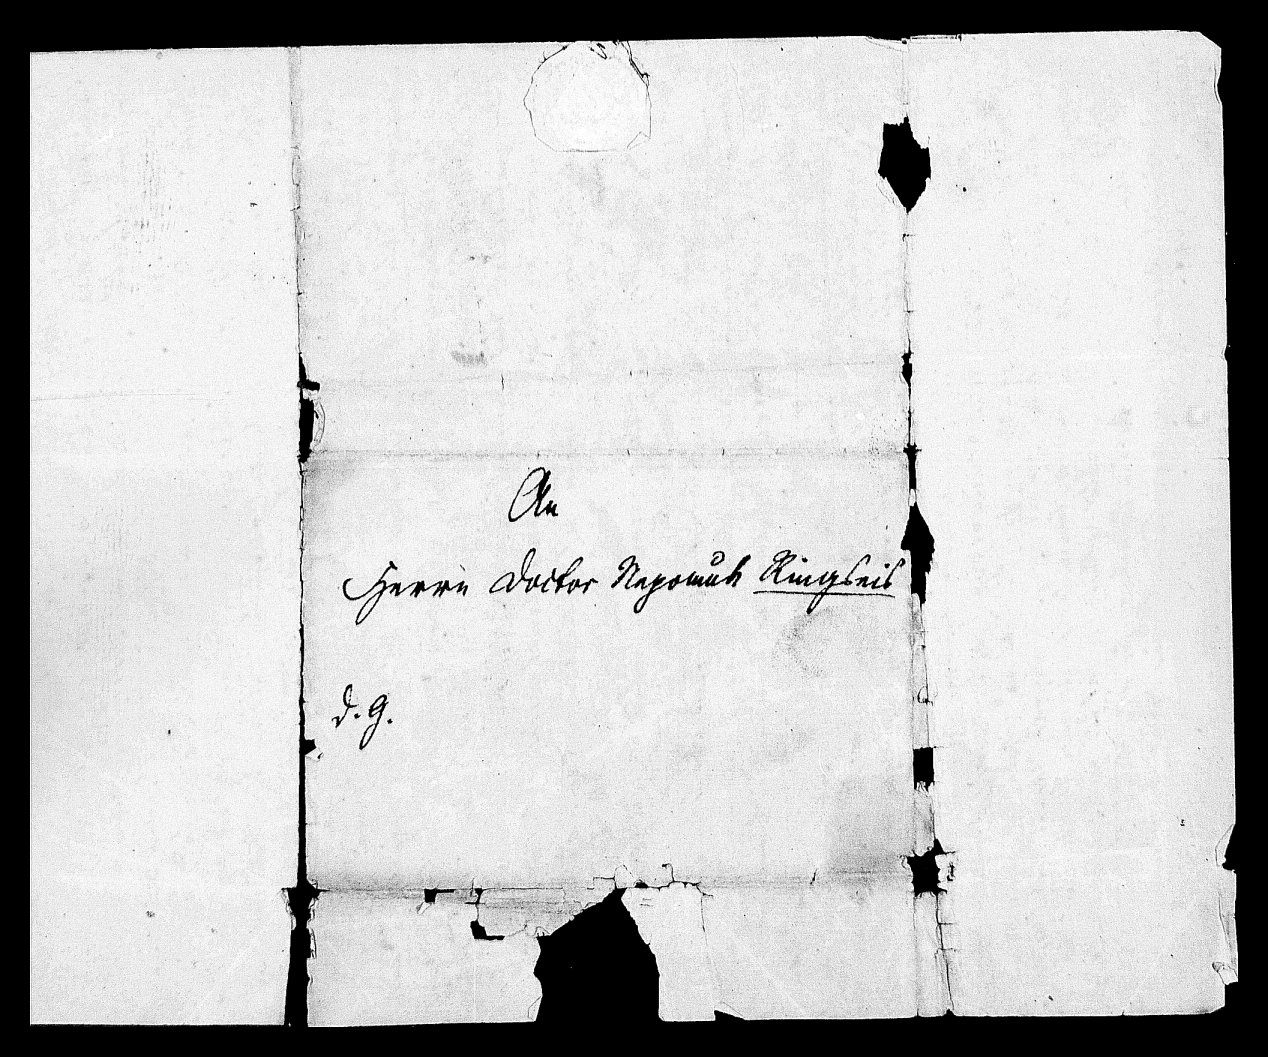 An
Herrn Doctor Nepomuk Ringseis
d. G.